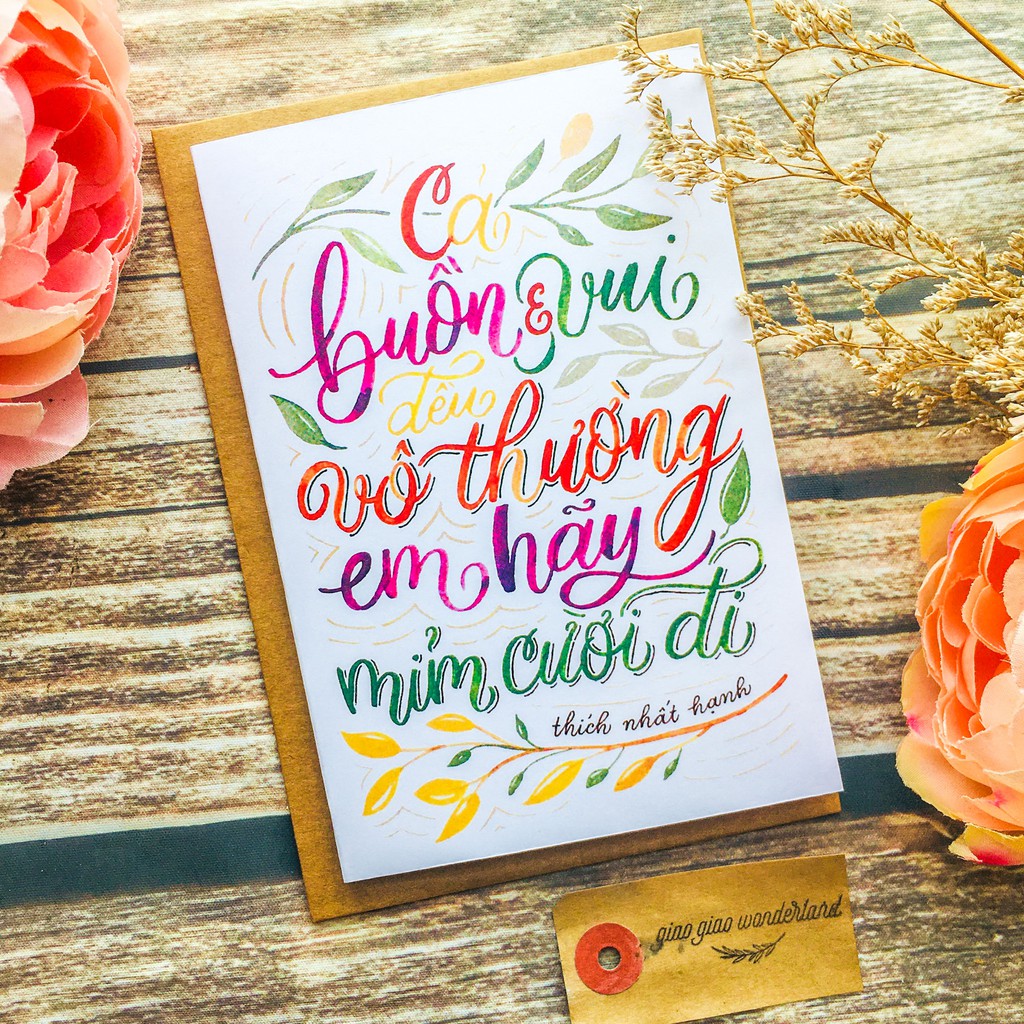 Cả
buồn & vui
đều
vô thường
em hãy
mỉm cười đi
thích nhất hạnh
giao giao wonderland